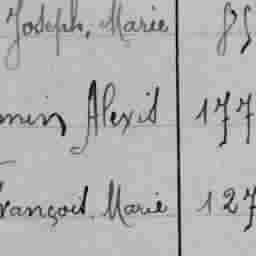 Joseph, Marie 85
min Alexis 177
rançois Marie 127